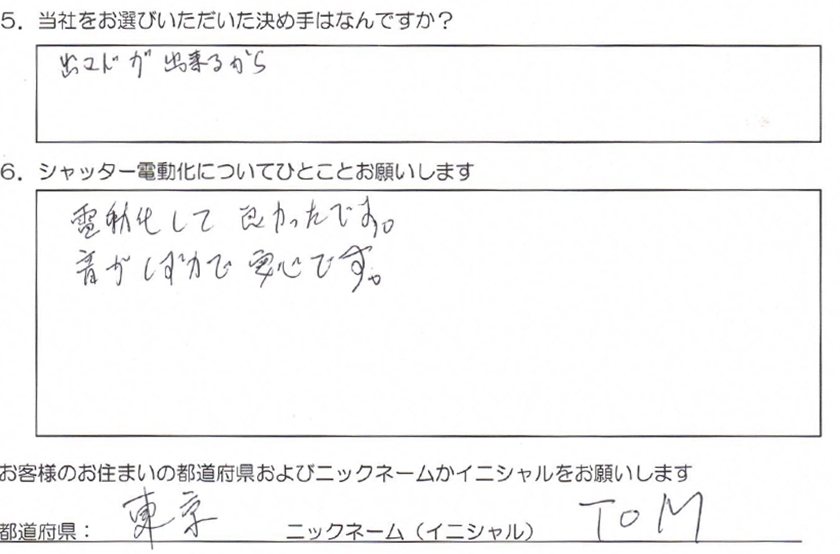 5. 当社をお選びいただいた決め手はなんですか？
が 出来るから
6. シャッター電動化についてひとことお願いします
電動化して 良かったです。
音が しずかで 安心です。
お客様のお住まいの都道府県およびニックネームかイニシャルをお願いします
都道府県： 東京 ニックネーム（イニシャル） TOM